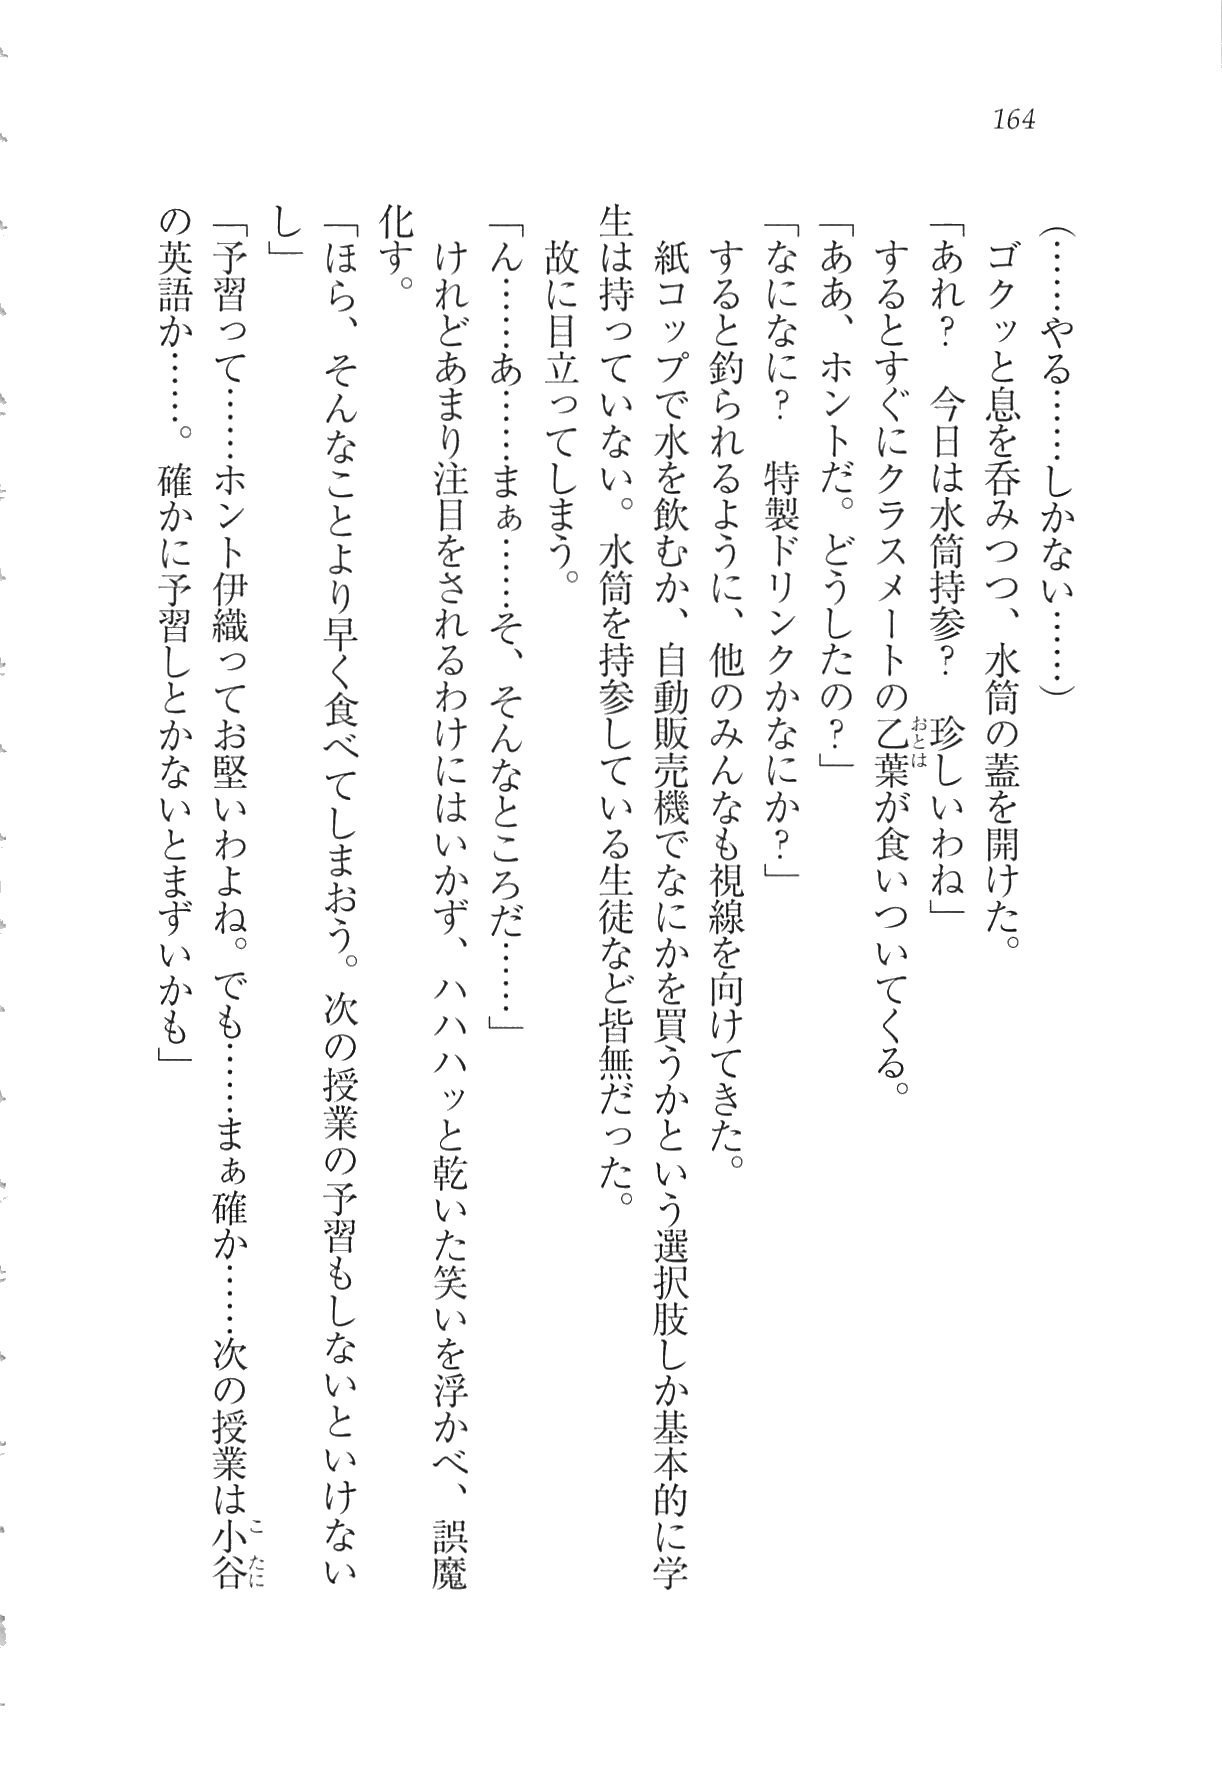 164
(……やる……しかない……)
　ゴクッと息を呑みつつ、水筒の蓋を開けた。
「あれ？　今日は水筒持参？　珍しいわね」
　するとすぐにクラスメートの乙葉が食いついてくる。
おとは
「ああ、ホントだ。どうしたの？」
「なになに？　特製ドリンクかなにか？」
　すると釣られるように、他のみんなも視線を向けてきた。
　紙コップで水を飲むか、自動販売機でなにかを買うかという選択肢しか基本的に学
生は持っていない。水筒を持参している生徒など皆無だった。
　故に目立ってしまう。
「ん……あ……まぁ……そ、そんなところだ……」
　けれどあまり注目をされるわけにはいかず、ハハハッと乾いた笑いを浮かべ、誤魔
化す。
「ほら、そんなことより早く食べてしまおう。次の授業の予習もしないといけない
し」
「予習って……ホント伊織ってお堅いわよね。でも……まぁ確か……次の授業は小谷
こたに
の英語か……。確かに予習しとかないとまずいかも」